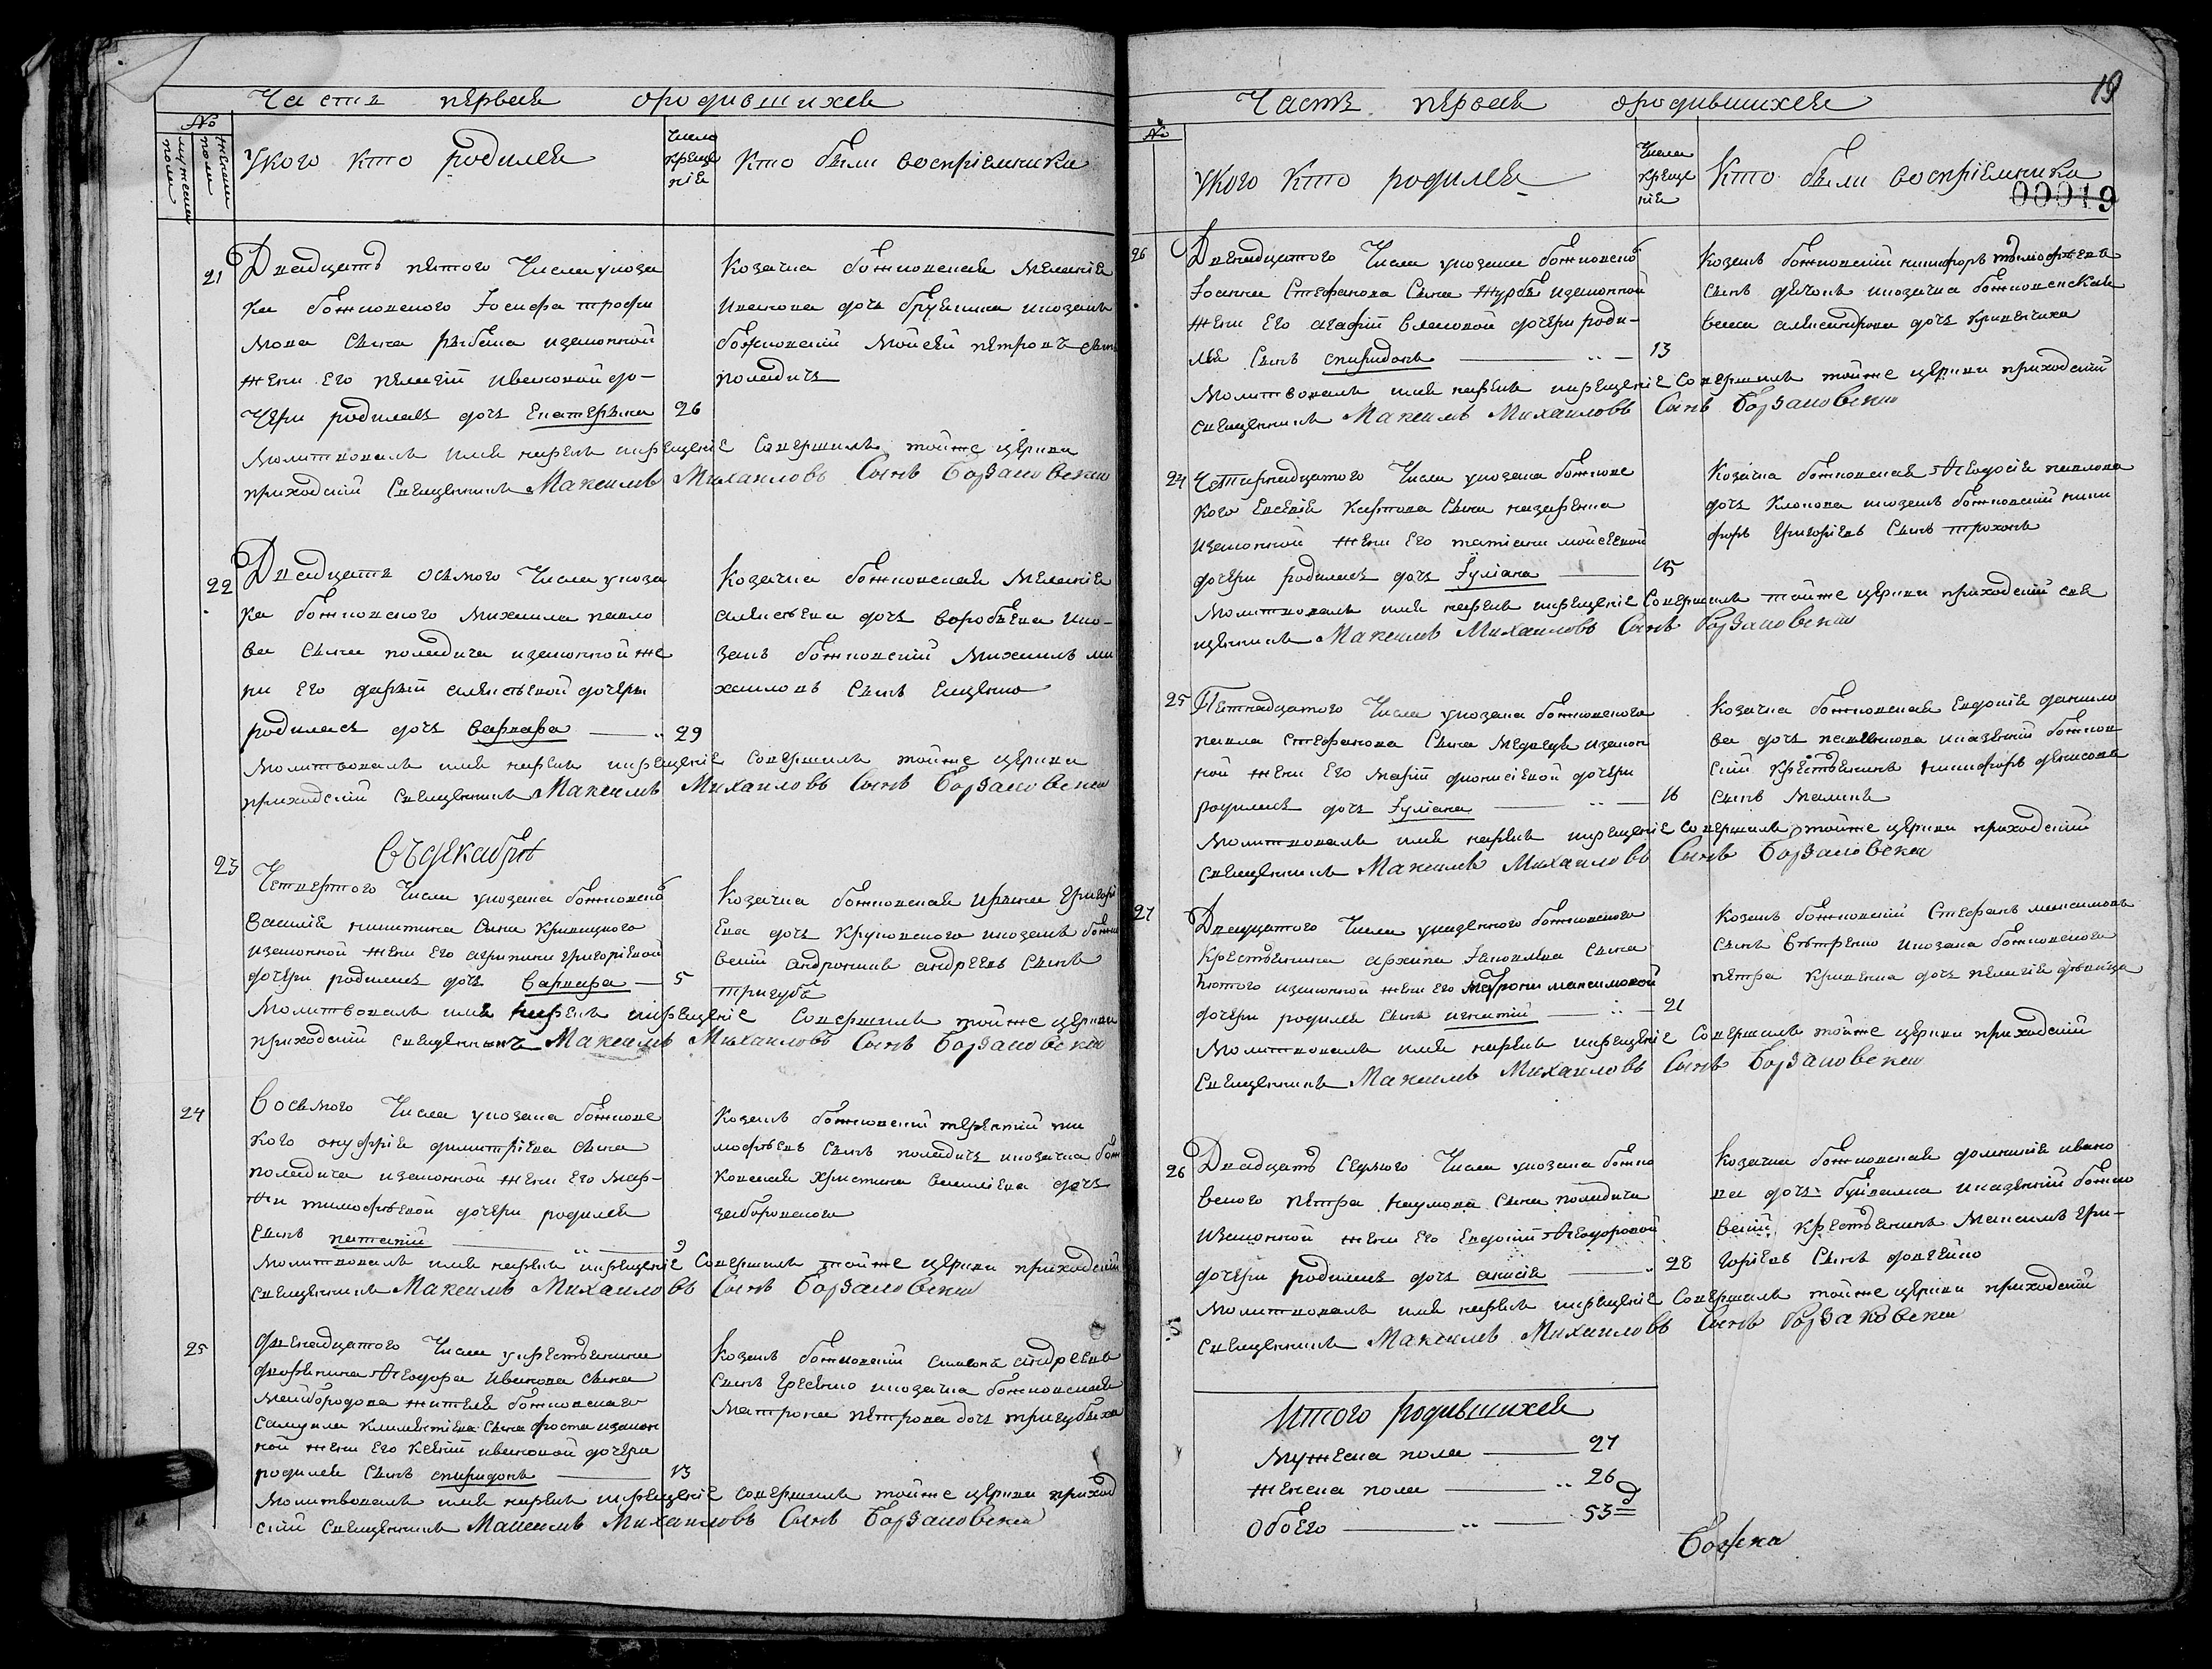 Часть первая ородившихся
№
мужеска пола
женска пола
Укого кто родился
Число креще нія
Кто были воспріемники
21
Двадцать пятого Числа укоза
ка божковского Іосифа трофи
мова Сына рыбака изаконной
жены Его пелагіи ивановой до-
чери родилась дочь Екатерина 26
Козачка божковская Меланія
иванова дочь икозакъ
божковскій Мойсей петровъ сынъ
поладичъ
Молитвовалъ имя нарекъ икрещеніе Совершилъ тойже церкви
приходскій Священникъ Максимъ Михаиловъ Сынъ Борзаковскій
22
Двадцать осьмого Числа укоза
ка божковского Михаила павло
ва Сына поладича изаконной же
ны Его дарьи алексѣевой дочери
родилась дочь варвара 29
Козачка божковская Меланія
алексѣева дочь воробьева ико-
закъ божковскій Михаилъ ми
хаиловъ Сынъ ещенко
Молитвовалъ имя нарекъ икрещеніе Совершилъ тойже церкви
приходскій Священникъ Максимъ Михаиловъ Сынъ Борзаковскій
Въ декабрѣ
23
Четвертого Числа укозака божковско
Василія никитина Сына Кривицкого
изаконной жены Его агрипины григоріевой
дочери родилась дочь Варвара 5
Козачка божковская ирина григорі
ева дочь круковского икозакъ божко
вскій андроникъ андреевъ Сынъ
тригубъ
Молитвовалъ имя нарекъ икрещеніе Совершилъ тойже церкви
приходскій священникъ Максимъ Михаиловъ Сынъ Борзаковскій
24
Восьмого Числа укозака божковс
кого онуфрія димитріева сына
поладича изаконной жены Его мар-
ти тимофѣевой дочери родился
Сынъ 9
Козакъ божковскій терентій ти
мофѣевъ Сынъ поладичъ икозачка бож
ковская Христина василіева дочь
заборовского
Молитвовалъ имя нарекъ икрещеніе Совершилъ тойже церкви приходскій
священникъ Максимъ Михаиловъ Сынъ Борзаковскій
25
Двенадцатого Числа укрестьянина
дворянина Ѳеодора иванова сына
Майбородова жителя божковскаго
Самуила климентіева сына хроста изакон
ной жены Его ксеніи ивановой дочери
родился Сынъ спиридонъ 13
Козакъ божковскій симеонъ андреевъ
Сынъ икозачка божковская
Матрона петрова дочь тригубиха
Молитвовалъ имя нарекъ икрещеніе совершилъ тойже церкви приход
скій Священникъ Максимъ Михаиловъ Сынъ Борзаковскій
19
Часть первая ородившихся
№
Укого Кто родился
Число креще нія
Кто были воспріемники
00019
26
Двенадцатого Числа укозака божковско
Іоанна Стефанова Сына журбы изаконной
жены Его агафіи власовой дочери роди-
лся Сынъ спиридонъ 13
Козакъ божковскій никифоръ тимофѣевъ
сынъ икозачка божковская
васса александрова дочь кривенчиха
Молитвовалъ имя нарекъ икрещеніе Совершилъ тойже церкви приходскій
священникъ Максимъ Михаиловъ Сынъ Борзаковскій
24
Четирнадцатого Числа укозака божковс
кого Евсевія карпова Сына назаренка
изаконной жены Его татіаны мойсеевой
дочери родилась дочь Іуліана 15
Козачка божковская Ѳеодосія павлова
дочь Клокова икозакъ божковскій ники
форъ григоріевъ Сынъ трохонь
Молитвовалъ имя нарекъ икрещеніе Совершилъ тойже церкви приходскій свя
щенникъ Максимъ Михаиловъ Сынъ Борзаковскій
25
Пятнадцатого Числа укозака божковского
павла Стефанова Сына медведя изакон
ной жены Его маріи діонисіевой дочери
родилась дочь Іуліана 16
Козачка божковская Евдокія данило
ва дочь иказенній божков
скій крестьянинъ никифоръ денисовъ
сынъ малинъ
Молитвовалъ имя нарекъ икрещеніе совершилъ тойже церкви приходскій
священникъ Максимъ Михаиловъ Сынъ Борзаковскій
27
Двадцатого Числа указенного божковского
Крестьянина архипа Іаковлева Сына
лютого изаконной жены Его матроны максимовой
дочери родился Сынъ игнатій 21
Козакъ божковскій Стефанъ максимовъ
Сынъ вѣтренко икозака божковского
петра кривенка дочь пелагія дѣвица
Молитвовалъ имя нарекъ икрещеніе Совершилъ тойже церкви приходскій
Священникъ Максимъ Михаиловъ Сынъ Борзаковскій
26
Двадцать Седмого Числа укозака божко
вского петра наумова Сына поладича
изаконной жены Его Евдокіи Ѳеодоровой
дочери родилась дочь анисія 28
Козачка божковская домникія ивано
ва дочь иказенній божко
вскій крестьянинъ Максимъ гри-
горіевъ Сынъ довгенко
Молитвовалъ имя нарекъ икрещеніе Совершилъ тойже церкви приходскій
священникъ Максимъ Михаиловъ Сынъ Борзаковскій
Итого родившихся
Мужеска пола 27
женска пола 26
Обоего 53